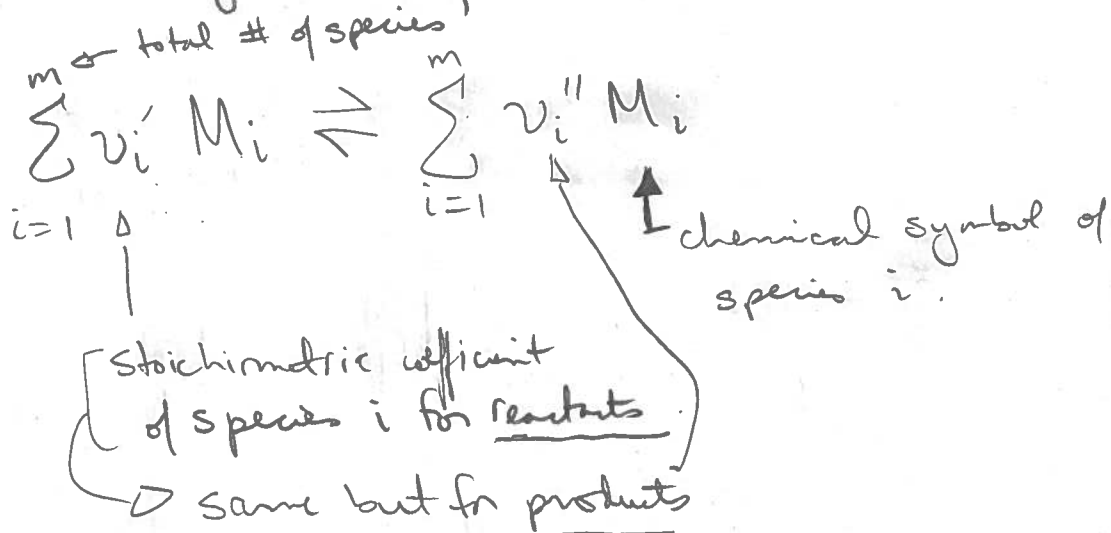 m ← total # of species
∑ νi′ Mi ⇌ ∑ νi″ Mi
i=1 i=1
chemical symbol of
species i.
Stoichimetric cofficient
of species i for reactats
→ same but for products